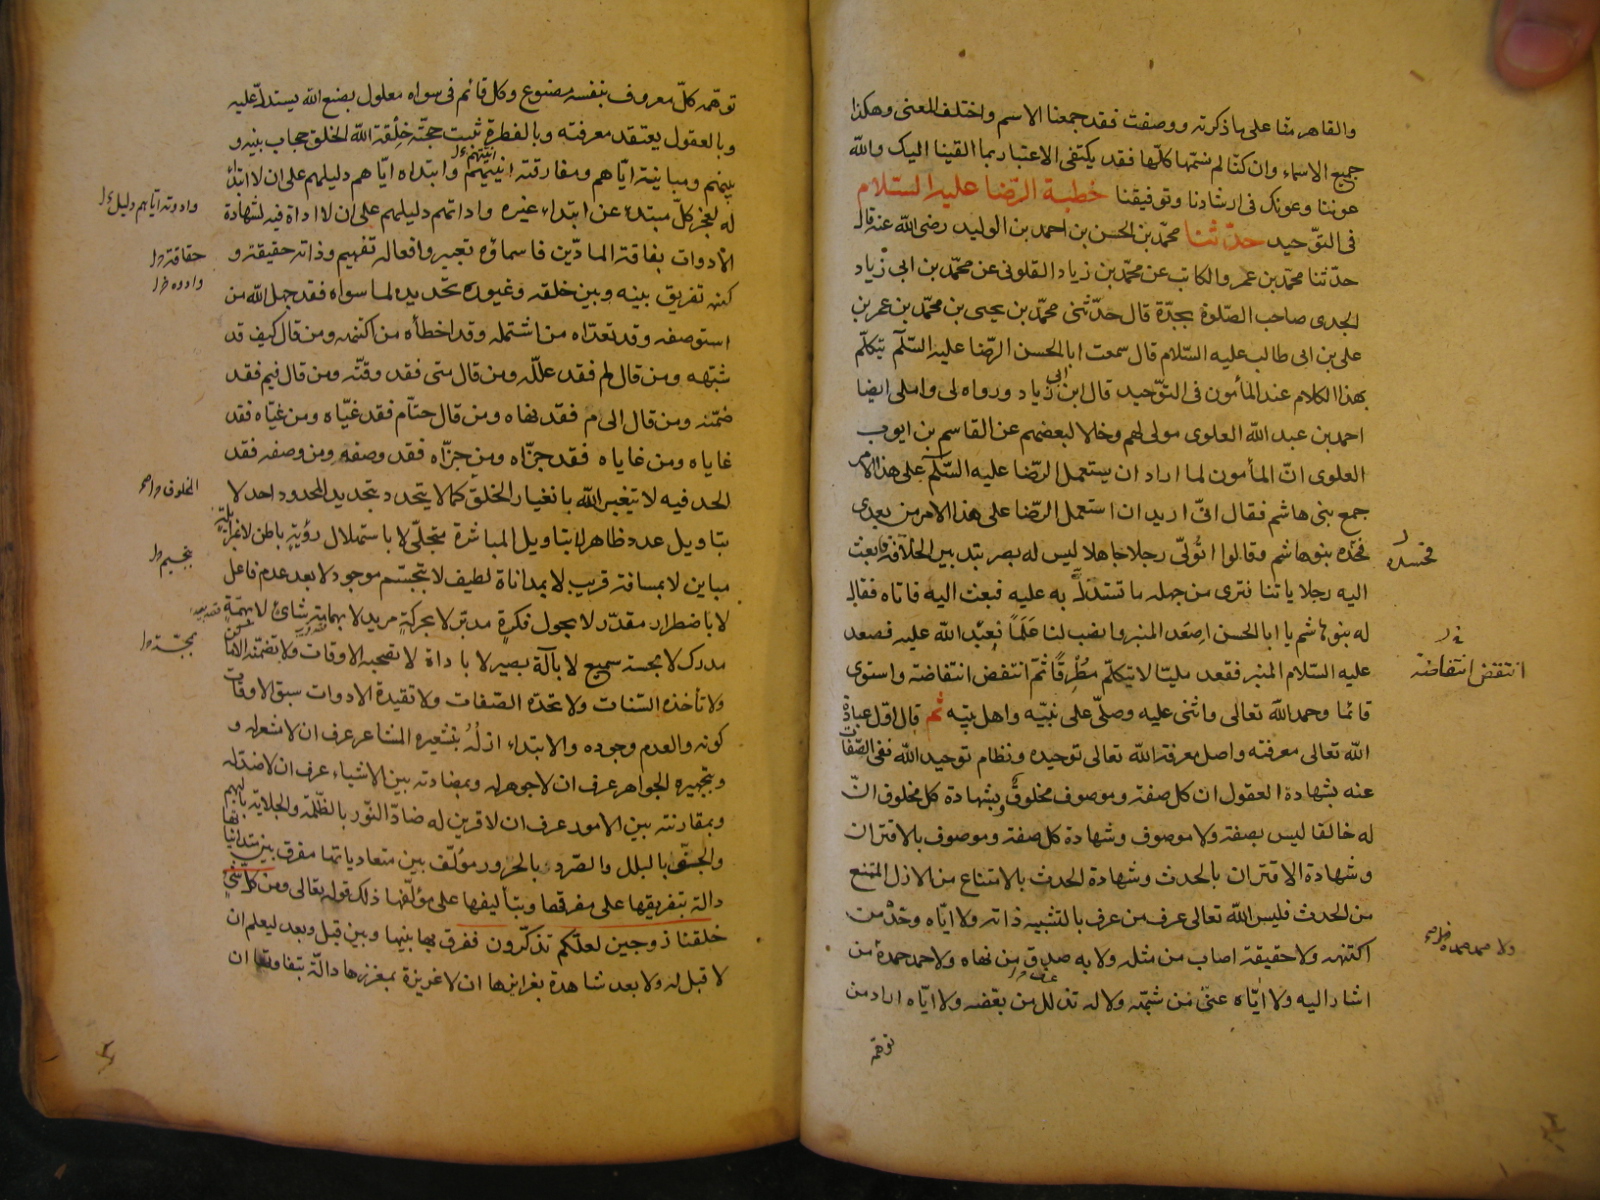 والقاهر منا على ما ذكرته ووصفت فقد جمعنا الاسم واختلف المعنى وهكذا
جميع الاسماء وان كنا لم نسمها كلها فقد يكتفى الاعتبار بما القينا اليك والله
عوننا وعونك فى ارشادنا وتوفيقنا خطبة الرّضا عليه السّلام
فى التوّحيد حدّثنا محمّد بن الحسن بن احمد بن الوليد رضى الله عنه قال
حدّثنا محمّد بن عمرو الكاتب عن محمّد بن زياد القلونى عن محمّد بن ابى زياد
الجدى صاحب الصّلوة بجدّة قال حدّثنى محمّد بن يحيى بن محمّد بن عمر بن
على بن ابى طالب عليه السّلام قال سمعت ابا الحسن الرّضا عليه السّلم يتكلّم
بهذا الكلام عند المأمون فى التّوحيد قال ابن ابى زياد ورواه لى واملى ايضا
احمد بن عبد الله العلوى مولى لهم وخالا لبعضهم عن القاسم بن ايوب
العلوى انّ المأمون لما اراد ان يستعمل الرّضا عليه السّلم على هذا الامر
جمع بنى هاشم فقال انّى اريد ان استعمل الرّضا على هذا الامر من بعدى
فحسّده بنو هاشم وقالوا اتُولّى رجلا جاهلا ليس له بصر بتدبير الخلافة فابعث
فحسدوه
اليه رجلا ياتنا فترى من جهله ما تستدلّ به عليه فبعث اليه فاتاه فقال
له بنو هاشم يا ابا الحسن اصعَد المنبر وانصب لنا عَلَمًا نعبُد الله عليه فصعد
عليه السّلام المنبر فقعد مليّا لا يتكلّم مُطْرِقًا ثمّ انتفض انتفاضة واستوى
انتقض انتقاضة
قائما وحمد الله تعالى واثنى عليه وصلّى على نبيّه واهل بيته ثم قال اوّل عبادة
الله تعالى معرفته واصل معرفة الله تعالى توحيده ونظام توحيد الله نفى الصّفات
عنه بشهادة العقول ان كل صفة وموصوف مخلوق وبشهادة كل مخلوق انّ
له خالقا ليس بصفة ولا موصوف وشهادة كل صفة وموصوف بالاقتران
وشهادة الاقتران بالحدث وشهادة الحدث بالامتناع من الازل الممتنع
من الحدث فليس الله تعالى عرف من عرف بالتشبيه ذاته ولا ايّاه وحّد من
اكتنهه ولا حقيقته اصاب من مثله ولا به صدق من نهاه ولا صمد صمده من
ولا صمد صمده
اشار اليه ولا ايّاه عنى من شبّهه ولا له تذلل من بعّضه ولا ايّاه اراد من
توهمه
توهّمه كلّ معروف بنفسه مصنوع وكل قائم فى سواه معلول بصنع الله يستدلّ عليه
وبالعقول يعتقد معرفته وبالفطرة تثبت حجّته خِلْقة الله الخلق حجاب بينه و
بينهم ومباينته ايّاهم ومفارقته انيّتهم وابتداه ايّاهم دليلهم على ان لا ابتداء
انيتهم
له لعجز كلّ مبتدء عن ابتداء غيره واداتهم دليلهم على ان لا اداة فيه لشهادة
وادوته اياهم دليل
الادوات بفاقة المادّين فاسماؤه تعبير وافعاله تفهيم وذاته حقيقة و
حقاقة
كنهه تفريق بينه وبين خلقه وغيوره تحديد لما سواه فقد جهل الله من
استوصفه وقد تعدّاه من اشتمله وقد اخطأه من اكتنهه ومن قال كيف فقد
شبّهه ومن قال لم فقد علّله ومن قال متى فقد وقّته ومن قال فيم فقد
ضمّنه ومن قال الى م فقد نهاه ومن قال حتّام فقد غيّاه ومن غيّاه فقد
غاياه ومن غاياه فقد جزّاه ومن جزّاه فقد وصفه ومن وصفه فقد
الحد فيه لا يتغير الله بانغيار الخلق كما لا يتحدد بتحديد المحدود احد لا
المخلوق
بتاويل عدد ظاهر لا بتاويل المباشرة متجلّى لا باستهلال رؤية باطن لا بمزايلة
مباين لا بمسافة قريب لا بمداناة لطيف لا بتجسّم موجود لا بعد عدم فاعل
بتجسيم
لا باضطرار مقدّر لا بجول فكرة مدبّر لا بحركة مريد لا بهمامة شائ لا بهمّة
مدرك لا بمجسة سميع لا بآلة بصير لا باداة لا تصحبه الاوقات ولا تضمّنه الاماكن
بمجسّة
ولا تأخذه السّنات ولا تحدّه الصّفات ولا تقيده الادوات سبق الاوقات
كونه والعدم وجوده والابتداء ازلُهُ بتشعيره المشاعر عرف ان لا مشعر له و
وبتجهيره الجواهر عرف ان لا جوهر له وبمضادته بين الاشياء عرف ان لا ضدّ له
وبمقارنته بين الامور عرف ان لا قرين له ضادّ النّور بالظّلمة والجلاية بالبهم
والجسو بالبلل والصّرد بالحرور مؤلّف بين متعادياتها مفرق بين متدانياتها
دالة بتفريقها على مفرقها وبتأليفها على مؤلّفها ذلك قوله تعالى ومن كل شئ
خلقنا زوجين لعلّكم تذكّرون ففرق بها بينها وبين قبل وبعد ليعلم ان
لا قبل له ولا بعد شاهدة بغرايزها ان لا غريزة بمغرزها دالّة بتفاوتها ان